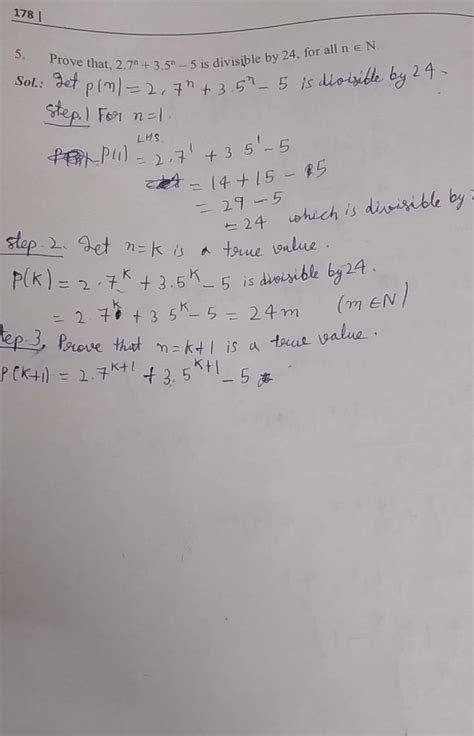 178 |
5. Prove that, 2.7ⁿ + 3.5ⁿ – 5 is divisible by 24, for all n ∈ N.
Sol.: Let p(n) = 2.7ⁿ + 3.5ⁿ - 5 is divisible by 24.
Step.1 For n=1.
LHS
P(1) = 2.7¹ + 3 5¹ - 5
= 14 + 15 - 5
= 29 - 5
= 24 which is divisible by
Step-2. Let n=k is a true value.
P(K) = 2.7ᴷ + 3.5ᴷ - 5 is divisible by 24.
= 2.7ᴷ + 3 5ᴷ - 5 = 24m (m ∈ N)
tep.3, Prove that n=k+1 is a true value.
P(K+1) = 2.7ᴷ⁺¹ + 3.5ᴷ⁺¹ - 5